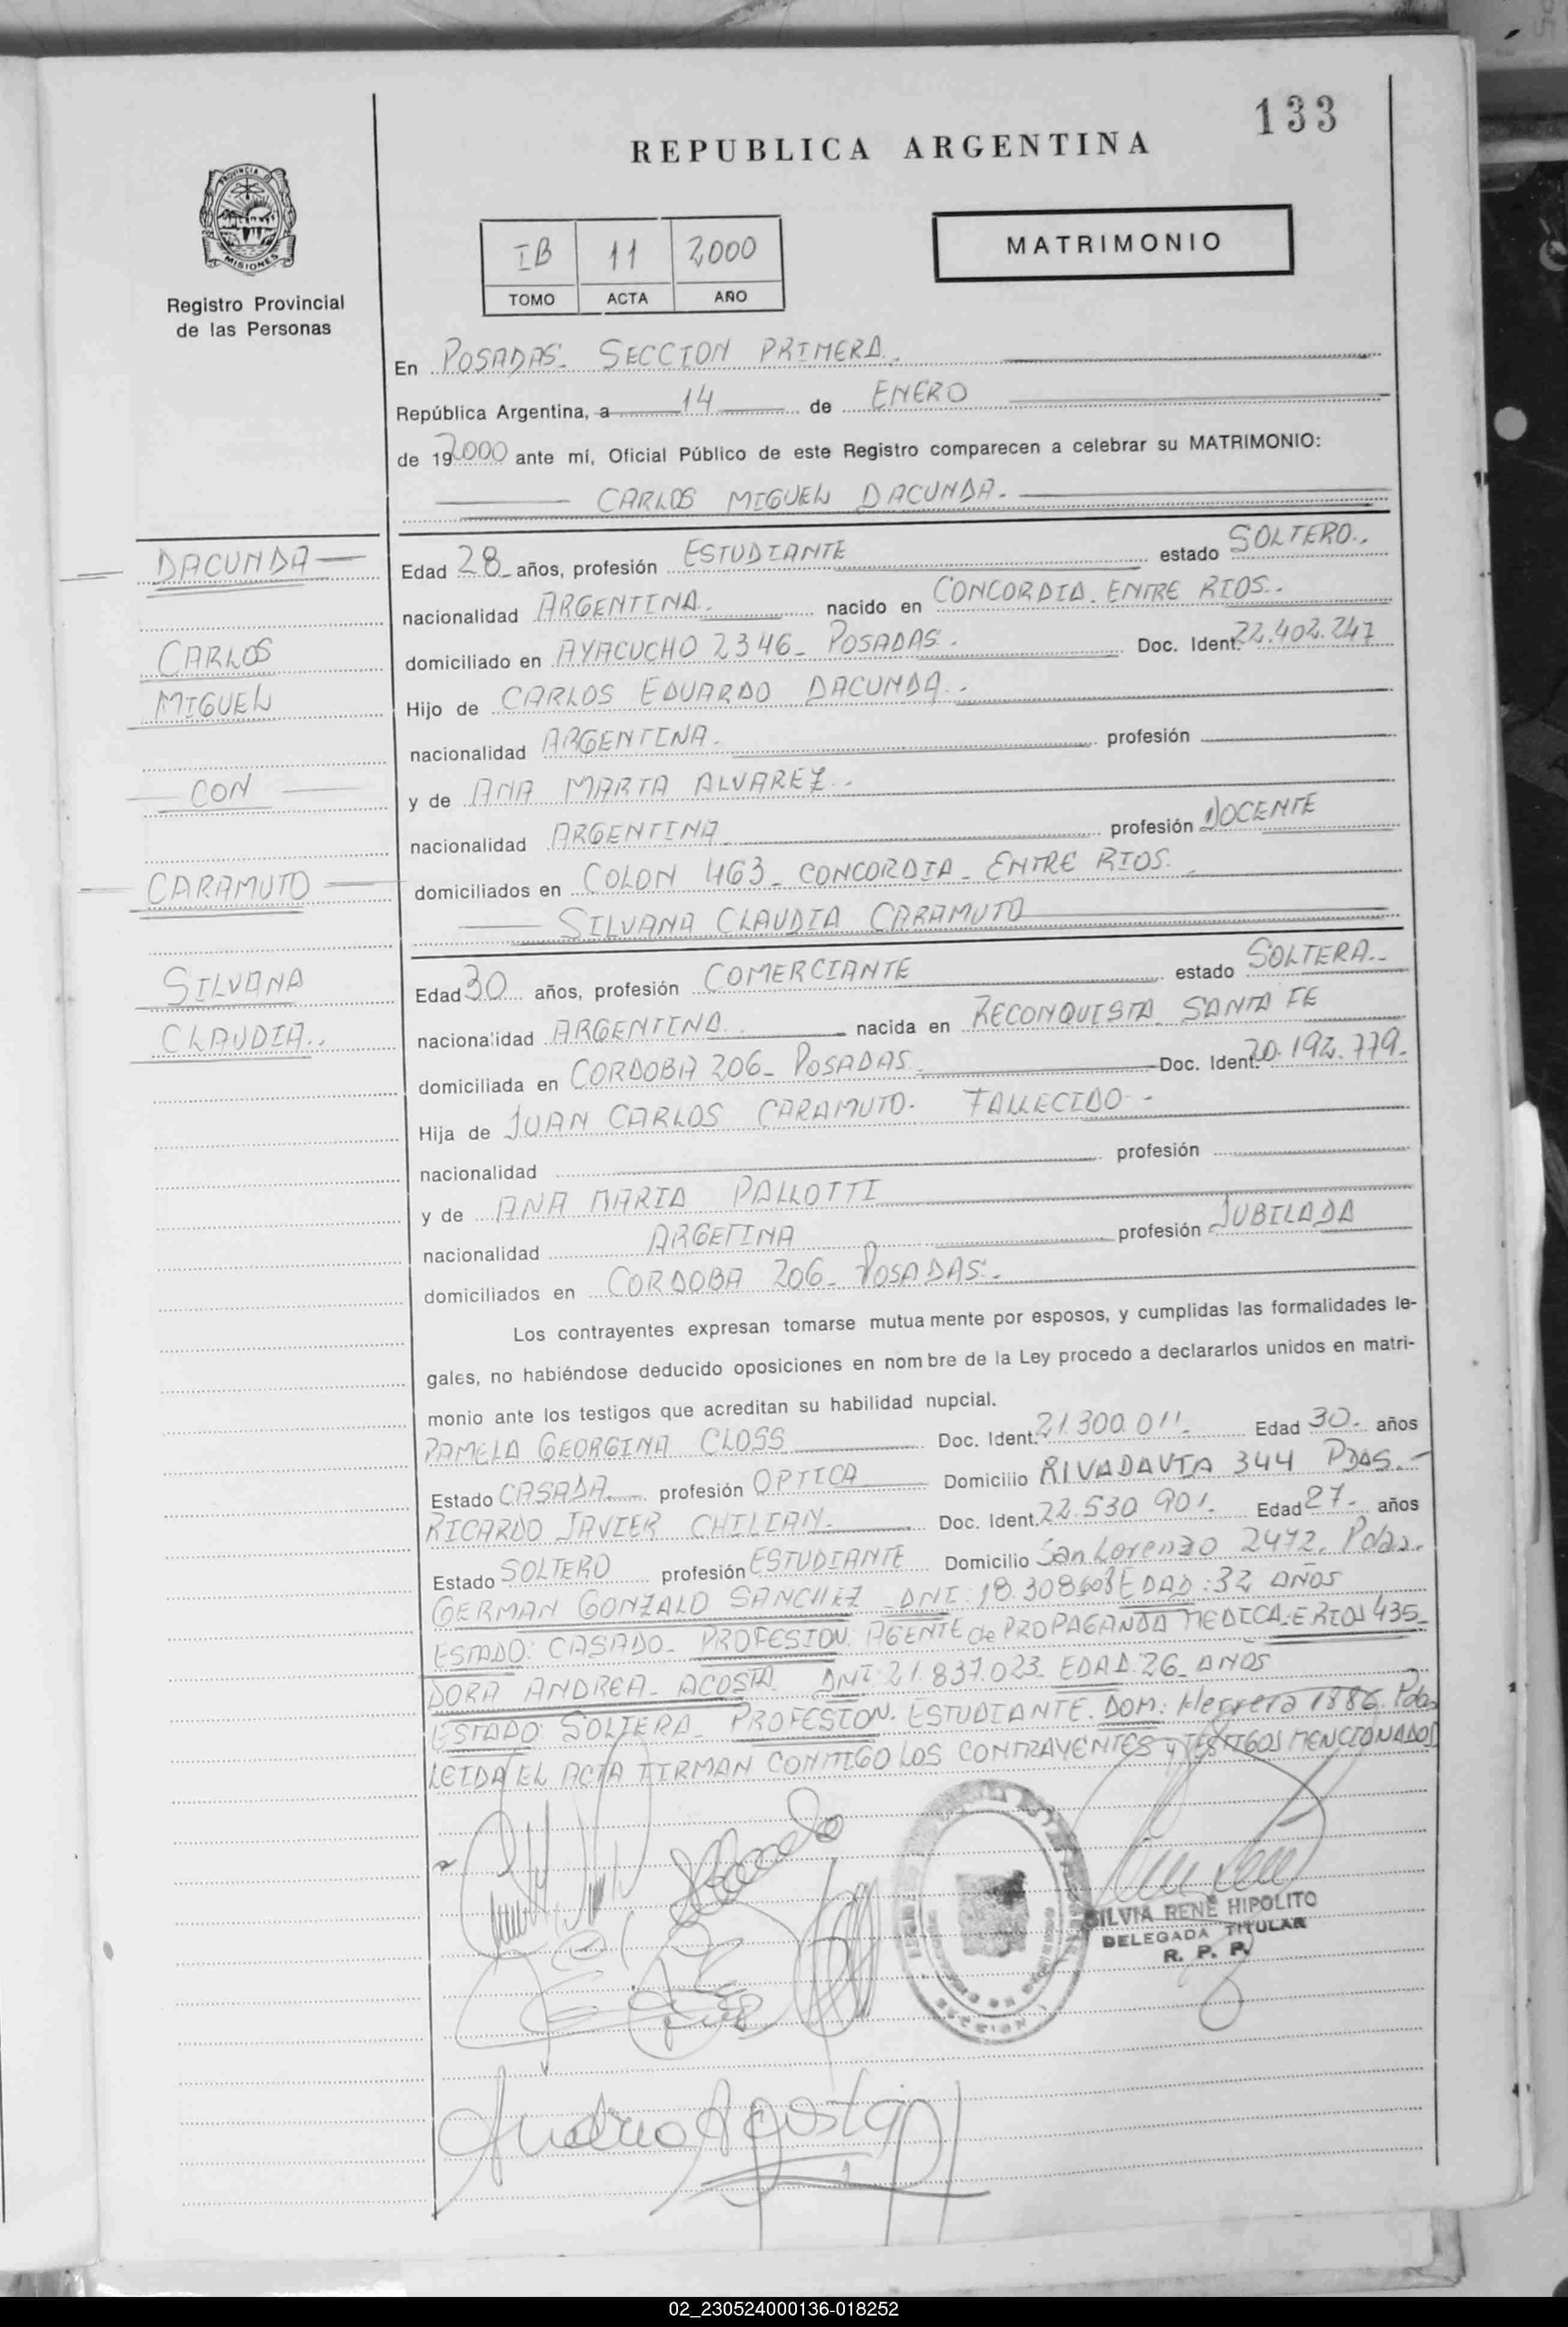 133
REPUBLICA ARGENTINA
PROVINCIA DE
MISIONES
Registro Provincial
de las Personas
IB 11 2000
TOMO ACTA AÑO
MATRIMONIO
En POSADAS- SECCION PRIMERA.
República Argentina, a 14 de ENERO
de 192000 ante mí, Oficial Público de este Registro comparecen a celebrar su MATRIMONIO:
CARLOS MIGUEL DACUNDA-
DACUNDA
Edad 28 años, profesión ESTUDIANTE estado SOLTERO.
nacionalidad ARGENTINA. nacido en CONCORDIA. ENTRE RIOS.
CARLOS
domiciliado en AYACUCHO 2346- POSADAS. Doc. Ident. 22.402.247
MIGUEL
Hijo de CARLOS EDUARDO DACUNDA.
nacionalidad ARGENTINA. profesión
CON
y de ANA MARIA ALVAREZ.
nacionalidad ARGENTINA profesión DOCENTE
CARAMUTO
domiciliados en COLON 463- CONCORDIA- ENTRE RIOS.
SILVANA CLAUDIA CARAMUTO
SILVANA
Edad 30 años, profesión COMERCIANTE estado SOLTERA.
CLAUDIA..
nacionalidad ARGENTINA. nacida en RECONQUISTA. SANTA FE
domiciliada en CORDOBA 206- POSADAS. Doc. Ident. 20.192.779.
Hija de JUAN CARLOS CARAMUTO. FALLECIDO-
nacionalidad profesión
y de ANA MARIA PALLOTTI
nacionalidad ARGETINA profesión JUBILADA
domiciliados en CORDOBA 206- POSADAS-
Los contrayentes expresan tomarse mutuamente por esposos, y cumplidas las formalidades le-
gales, no habiéndose deducido oposiciones en nombre de la Ley procedo a declararlos unidos en matri-
monio ante los testigos que acreditan su habilidad nupcial.
PAMELA GEORGINA CLOSS Doc. Ident. 21.300.011. Edad 30. años
Estado CASADA profesión OPTICA Domicilio RIVADAVIA 344 PDAS.-
RICARDO JAVIER CHILIAN. Doc. Ident. 22.530.901. Edad 27. años
Estado SOLTERO profesión ESTUDIANTE Domicilio San Lorenzo 2472. Pdas.
GERMAN GONZALO SANCHEZ - DNI: 18.308608 EDAD: 32 AÑOS
ESTADO: CASADO- PROFESION. AGENTE de PROPAGANDA MEDICA- E RIOS 435-
DORA ANDREA- ACOSTA. DNI: 21.837.023- EDAD. 26- AÑOS
ESTADO: SOLTERA- PROFESION. ESTUDIANTE. DOM: Herrera 1886. Pdas
LEIDA EL ACTA FIRMAN CONMIGO LOS CONTRAYENTES y TESTIGOS MENCIONADOS
SILVIA RENÉ HIPOLITO
DELEGADA TITULAR
R. P. P.
Andrea Acosta
02_230524000136-018252